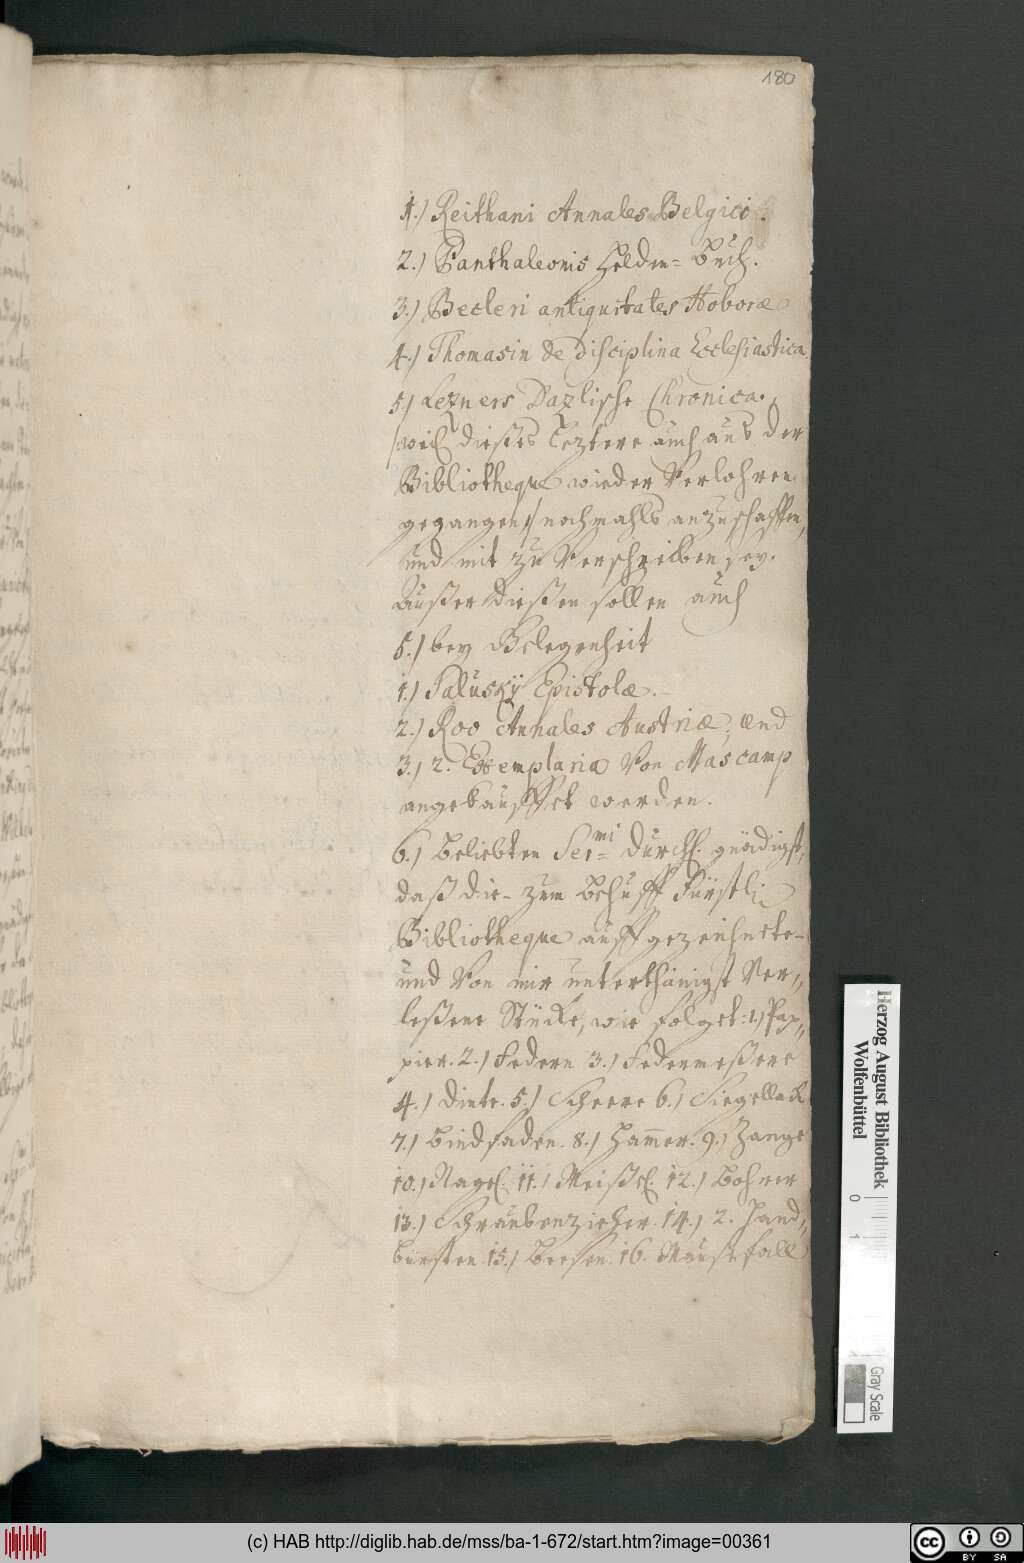 180
1.) Reithani Annales Belgici.
2.) Panthaleonis Helden= Buch.
3.) Becleri antiquitates Hoboræ
4.) Thomasin de disciplina Ecclesiastica
5.) Lezners Daßlische Chronica.
weil dießes leztere auch aus der
Bibliotheque wieder Verlohren
gegangen,) nochmahls anzuschaffen,
und mit zu Verschreiben sey.
Außer dießen sollen auch
5.) bey Gelegenheit
1.) Saluskÿ Epistolæ.
2.) Roo Annales Austriæ, und
3.) 2. Exemplaria Von Mascamp
angekauffet werden.
6.) Beliebten Sermi= Durchl. gnädigst,
daß die- zum Behuff Fürstl.
Bibliotheque auffgezeichnete-
und Von mir unterthänigst Ver„
leßene Stücke, wie folget: 1.) Pap„
pier. 2.) Federn 3.) Federmeßere
4.) Dinte. 5.) Scheere 6.) Siegellack
7.) Bindfaden. 8.) Ham̄er. 9.) Zange
10.) Nagel. 11.) Meißel. 12.) Bohrer
13.) Schraubenzieher. 14.) 2. Hand„
bürsten. 15.) Beesen. 16. Mausefall
Herzog August Bibliothek
Wolfenbüttel
0
1
Gray Scale
(c) HAB http://diglib.hab.de/mss/ba-1-672/start.htm?image=00361
cc BY SA